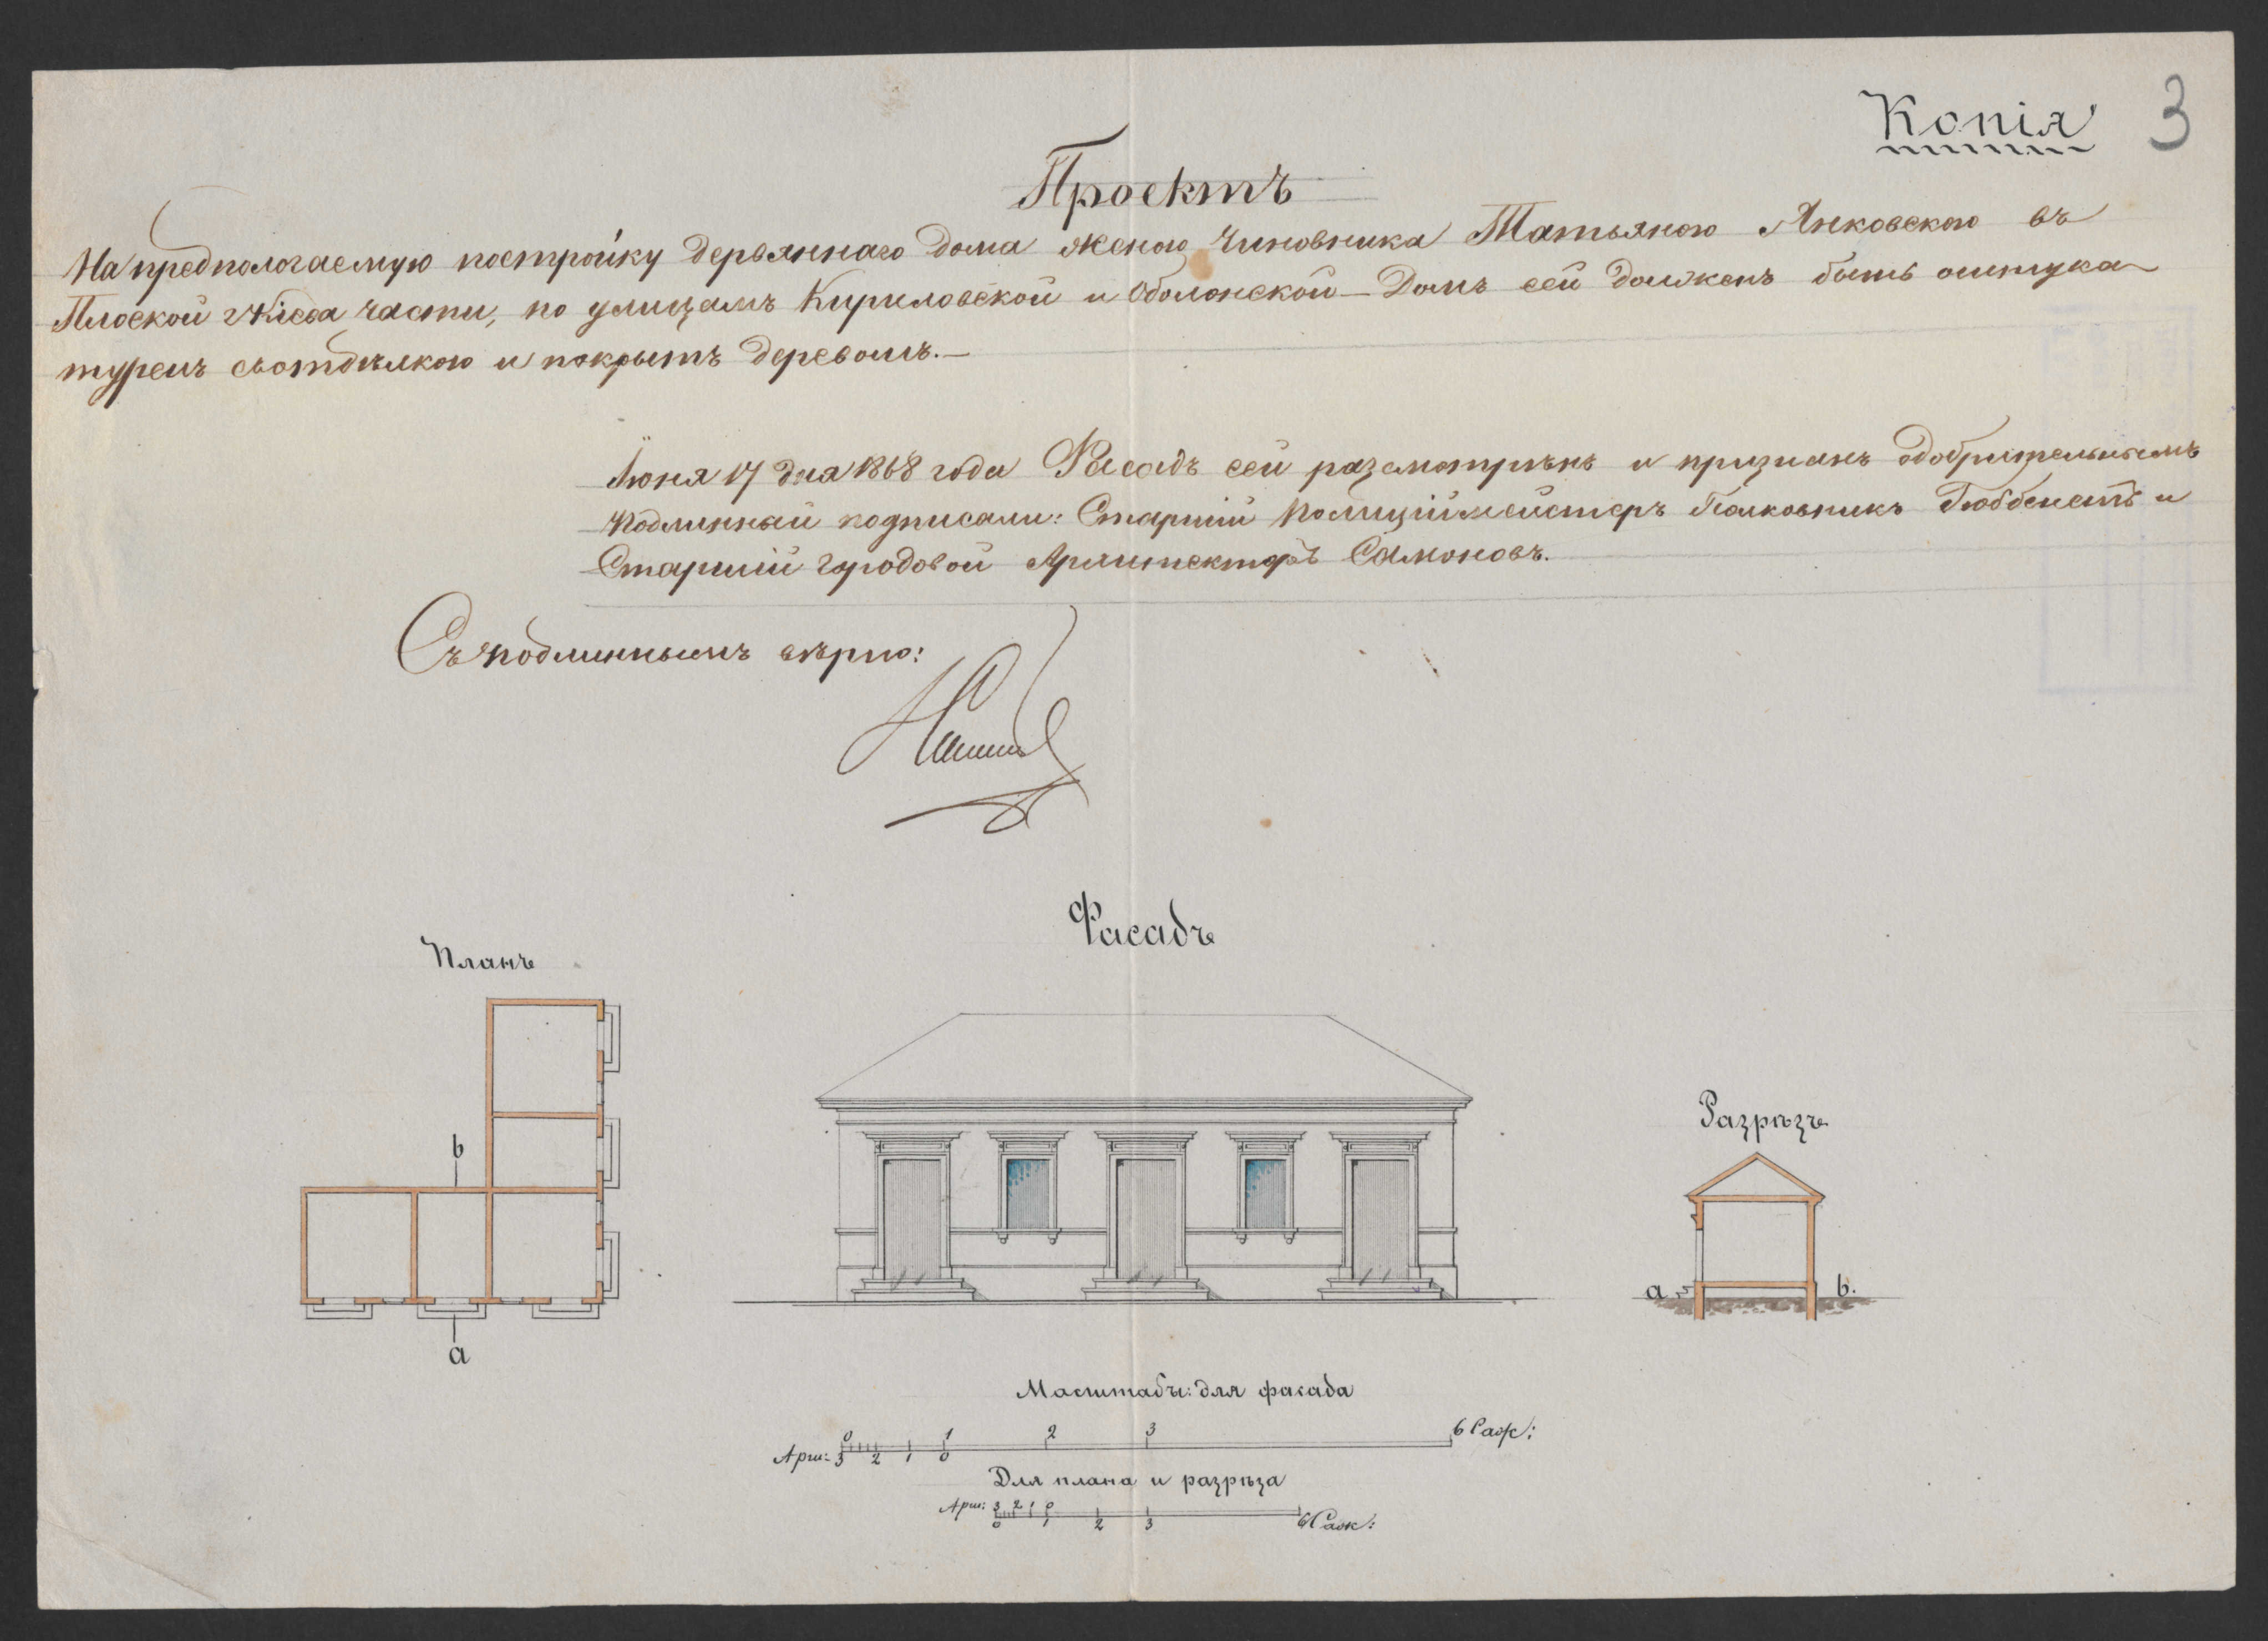 Копія 3
Проектъ
На предпологаемую постройку дервяннаго дома женою Чиновника Татьяною Янковскою въ
Плоской г Кіева части, по улицамъ Кириловской и Оболонской — Домъ сей долженъ быть оштука-
туренъ съотдѣлкою и покрытъ деревомъ. —
Іюня 17 дня 1868 года Фасадъ сей разсмотрѣнъ и признанъ одобрительнымъ
Подлинный подписали: Старшій Полиціймейстеръ Полковникъ Гюббенетъ и
Старшій Городовой Архитекторъ Самоновъ.
Съ подлиннымъ вѣрно:
Фасадъ
Планъ
Разрѣзъ
b
a
a b.
Масштабы: для фасада
0 1 2 3 6 Саж:
Арш: 3 2 1 0
Для плана и разрѣза
Арш: 3 2 1 0
0 1 2 3 6 Саж: